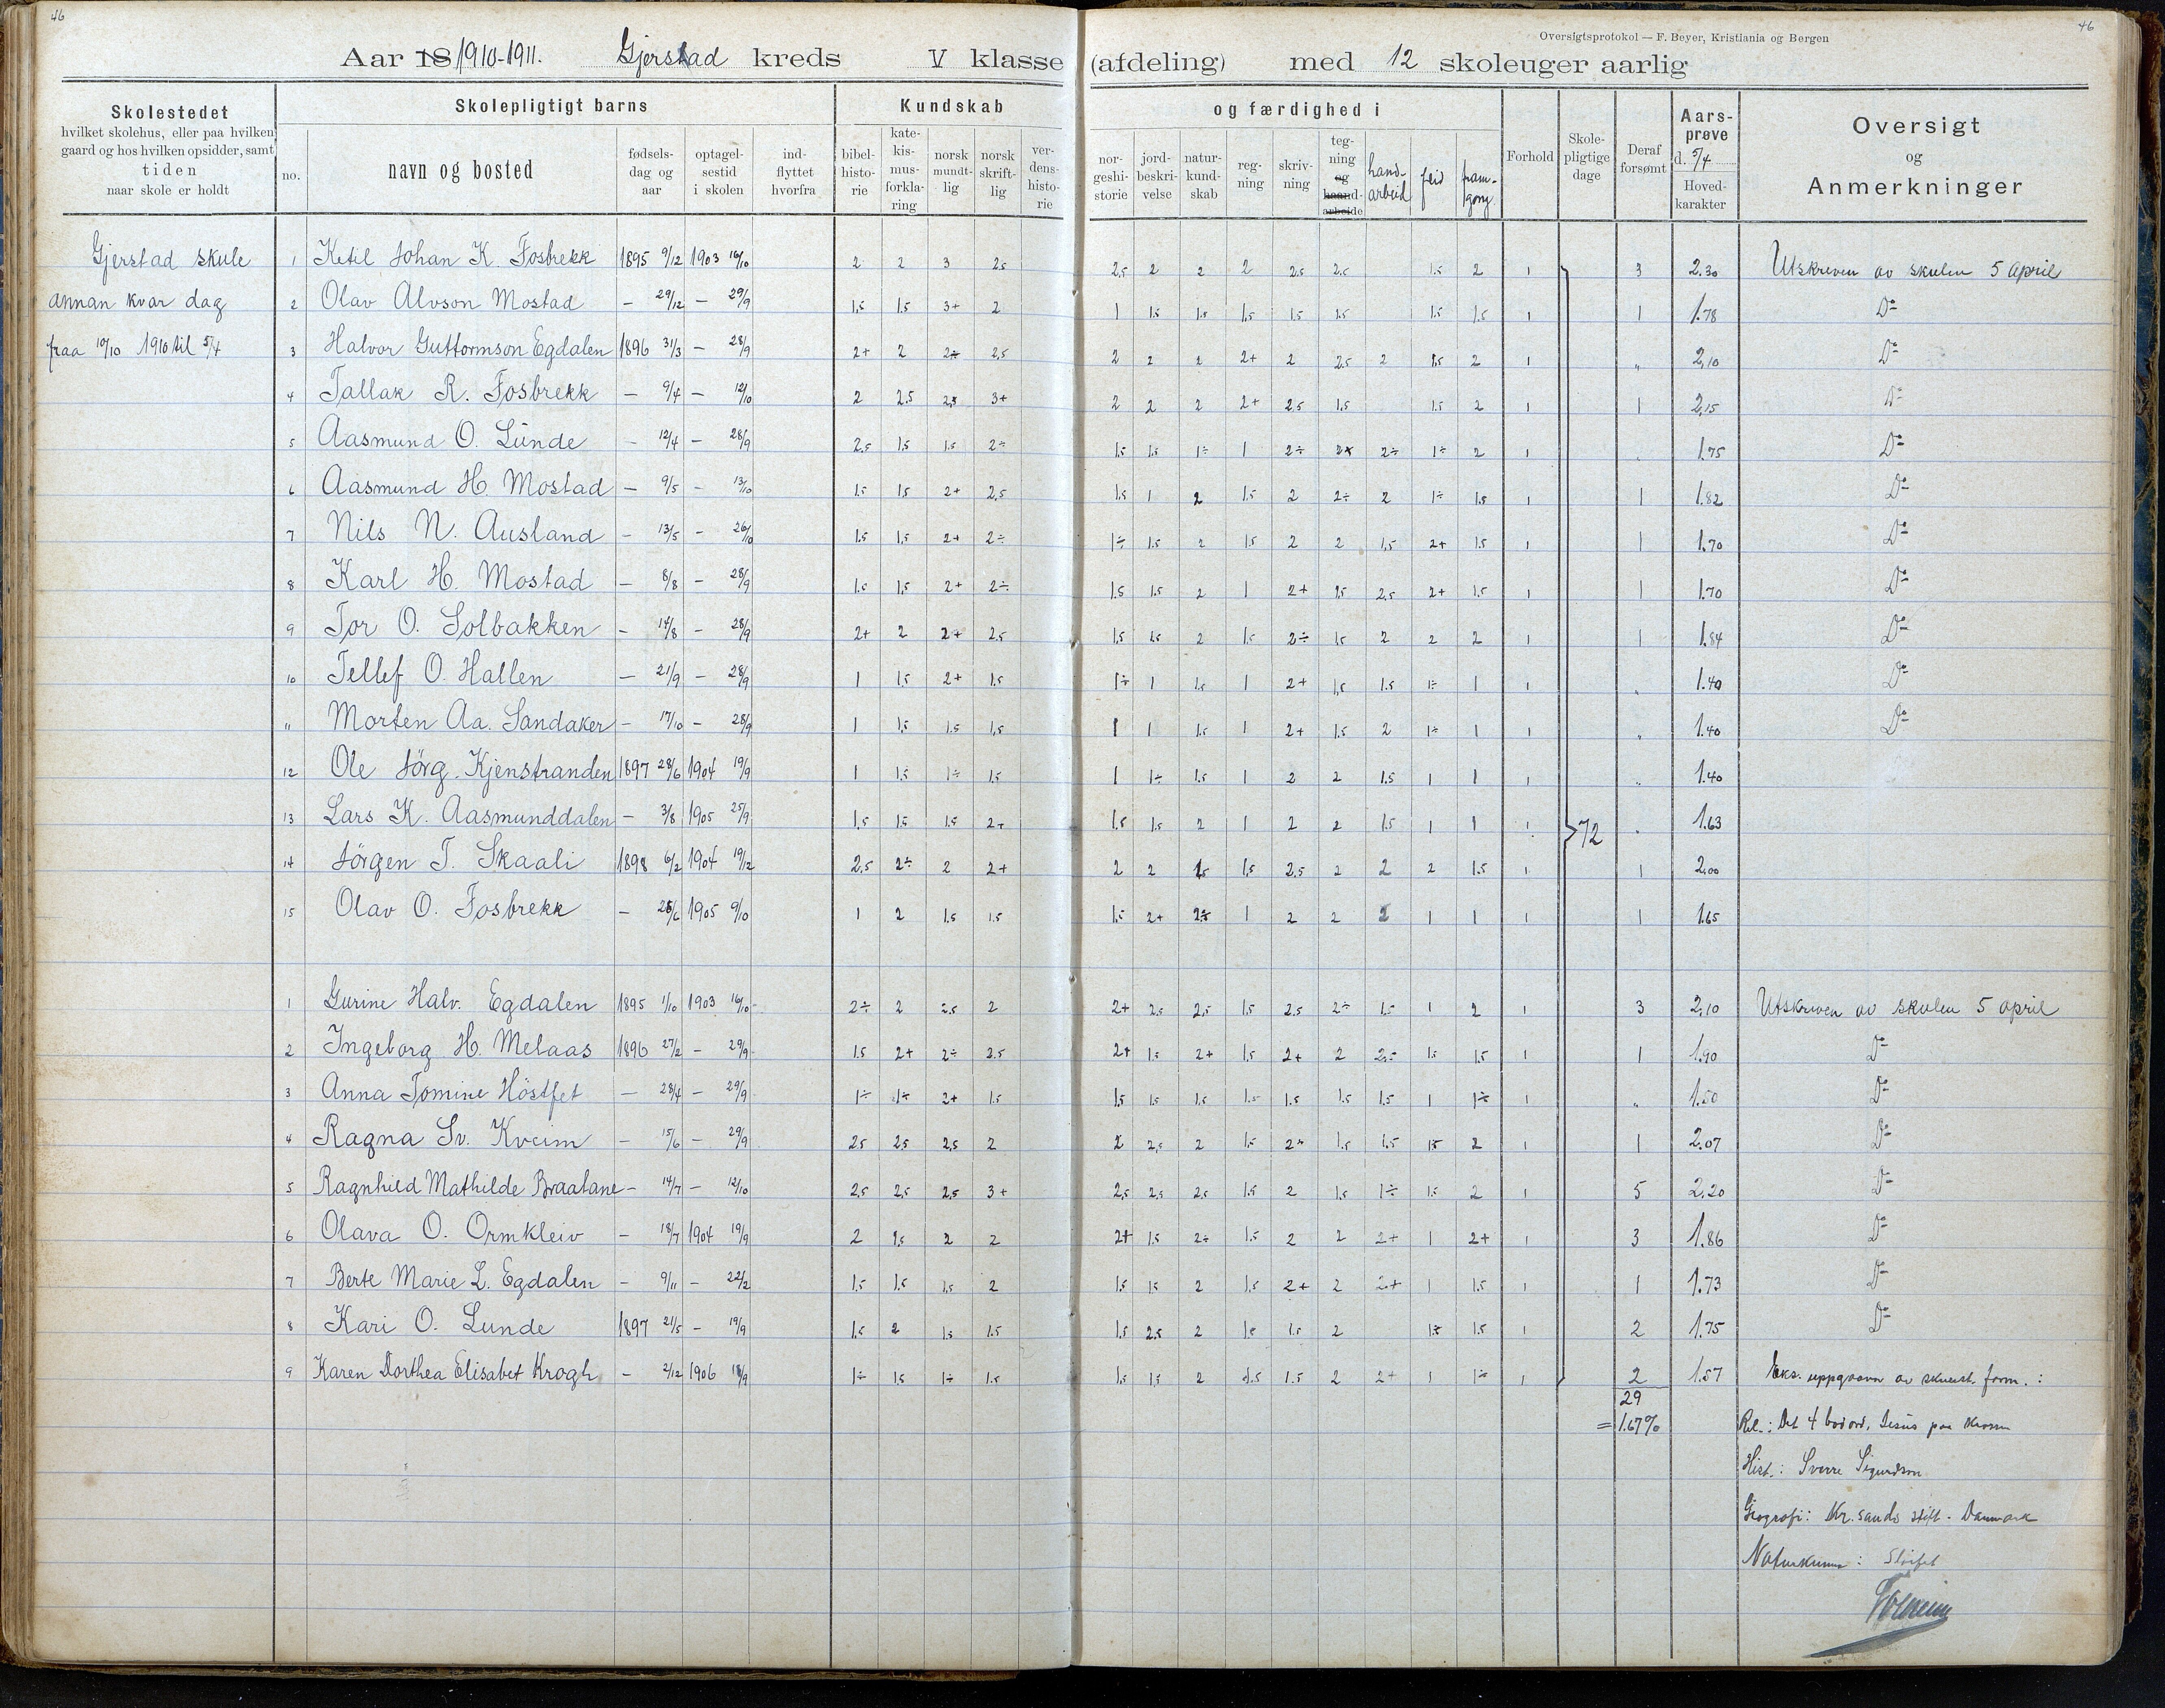 46
46
Oversigtsprotokol — F. Beyer, Kristiania og Bergen
Aar 18 1910-1911. Gjerstad kreds V klasse (afdeling) med 12 skoleuger aarlig
Skolestedet
hvilket skolehus, eller paa hvilken
gaard og hos hvilken opsidder, samt
tiden
naar skole er holdt
Skolepligtigt barns
no.
navn og bosted
fødsels-
dag og
aar
optagel-
sestid
i skolen
ind-
flyttet
hvorfra
Kundskab
bibel-
histo-
rie
kate-
kis-
mus-
forkla-
ring
norsk
mundt-
lig
norsk
skrift-
lig
ver-
dens-
histo-
rie
og færdighed i
nor-
geshi-
storie
jord-
beskri-
velse
natur-
kund-
skab
reg-
ning
skriv-
ning
teg-
ning
og
haand-
arbeide
hand-
arbeid
flid
fram-
gong
Forhold
Skole-
pligtige
dage
Deraf
forsømt
Aars-
prøve
d. 5/4
Hoved-
karakter
Oversigt
og
Anmerkninger
Gjerstad skule
annan kvar dag
fraa 10/10 1910 til 5/4
1 Ketil Johan K. Fosbrekk 1895 9/12 1903 16/10 2 2 3 2.5 2,5 2 2 2 2.5 2.5 1.5 2 1 3 2.30 Utskreven av skulen 5 april
2 Olav Alvson Mostad — 29/12 — 29/9 1,5 1.5 3+ 2 1 1.5 1.5 1,5 1.5 1.5 1.5 1.5 1 1 1.78 Do
3 Halvor Guttormson Egdalen 1896 31/3 — 28/9 2+ 2 2÷ 2,5 2 2 2 2+ 2 2.5 2 1.5 2 1 " 2,10 Do
4 Tallak R. Fosbrekk — 9/4 — 12/10 2 2.5 2,5 3+ 2 2 2 2+ 2.5 1.5 1.5 2 1 1 2,15 Do
5 Aasmund O. Lunde — 12/4 — 28/9 2.5 1,5 1.5 2÷ 1.5 1.5 1÷ 1 2÷ 2÷ 1÷ 2 1 1.75 Do
6 Aasmund H. Mostad — 9/5 — 13/10 1.5 1.5 2+ 2,5 1.5 1 2 1.5 2 2÷ 2 1÷ 1.5 1 1 1.82 Do
7 Nils N. Ausland — 13/5 — 26/10 1.5 1.5 2+ 2÷ 1÷ 1.5 2 1.5 2 2 1,5 2+ 1.5 1 1 1.70 Do
8 Karl H. Mostad — 8/8 — 28/9 1.5 1,5 2+ 2÷ 1.5 1.5 2 1 2+ 1.5 2,5 2+ 1.5 1 1 1.70 Do
9 Tor O. Solbakken — 14/8 — 28/9 2+ 2 2+ 2.5 1.5 1.5 2 1.5 2÷ 1.5 2 2 2 1 1 1.84 Do
10 Tellef O. Hallen — 21/9 — 28/9 1 1.5 2+ 1.5 1÷ 1 1.5 1 2+ 1,5 1.5 1÷ 1 1 " 1.40 Do
11 Morten Aa. Sandaker — 17/10 — 28/9 1 1.5 1.5 1,5 1 1 1.5 1 2+ 1.5 2 1÷ 1 1 " 1.40 Do
12 Ole Jörg. Kjenstranden 1897 28/6 1904 19/9 1 1.5 1÷ 1.5 1 1÷ 1.5 1 2 2 1.5 1 1 1 " 1.40
13 Lars K. Aasmunddalen — 3/8 1905 25/9 1,5 1.5 1.5 2÷ 1.5 1.5 2 1 2 2 1.5 1 1 1 72 1.63
14 Jörgen T. Skaali 1898 6/2 1904 19/12 2.5 2÷ 2 2+ 2 2 1.5 1.5 2.5 2 2 2 1.5 1 1 2.00
15 Olav O. Fosbrekk — 25/6 1905 9/10 1 2 1.5 1.5 1.5 2+ 2.5 1 2 2 2 1 1 1 1 1.65
1 Gurine Halv. Egdalen 1895 1/10 1903 16/10 2÷ 2 2.5 2 2+ 2.5 2,5 1.5 2.5 2÷ 1.5 1 2 1 3 2,10 Utskreven av skulen 5 april
2 Ingeborg H. Melaas 1896 27/2 — 29/9 1.5 2+ 2÷ 2.5 2+ 1.5 2+ 1.5 2+ 2 2.5 1.5 1.5 1 1 1.90 Do
3 Anna Tomine Höstfet — 28/4 — 29/9 1÷ 1÷ 2+ 1.5 1.5 1.5 1.5 1.5 1.5 1.5 1.5 1 1÷ 1 " 1.50 Do
4 Ragna Sv. Kveim — 15/6 — 29/9 2.5 2.5 2,5 2 2 2,5 2 1.5 2÷ 1.5 1.5 1.5 2 1 1 2.07 Do
5 Ragnhild Mathilde Braatane — 14/7 — 12/10 2.5 2,5 2,5 3+ 2,5 2.5 2.5 1.5 2 1.5 1÷ 1.5 2 1 5 2.20 Do
6 Olava O. Ormkleiv — 18/7 1904 19/9 2 1.5 2 2 2+ 1.5 2÷ 1.5 2 2 2+ 1 2+ 1 3 1.86 Do
7 Berte Marie L. Egdalen — 9/11 — 22/2 1.5 1.5 1.5 2 1.5 1.5 2 1.5 2+ 2 2+ 1 1.5 1 1 1.73 Do
8 Kari O. Lunde 1897 21/5 — 19/9 1.5 2 1.5 1.5 1.5 2.5 2 1.5 1.5 2 1.5 1.5 1 2 1.75 Do
9 Karen Dorthea Elisabet Krogh — 2/12 1906 18/9 1÷ 1.5 1÷ 1.5 1.5 1.5 2 1.5 1.5 2 2+ 1 1÷ 1 2 1.57 Eks. uppgaavor av form. :
29
= 1.67% Rel.: Det 4 bodord, Jesus paa krossen
Hist.: Sverre Sigurdson
Geografi: Kr.sands stift - Danmark
Naturkunna :